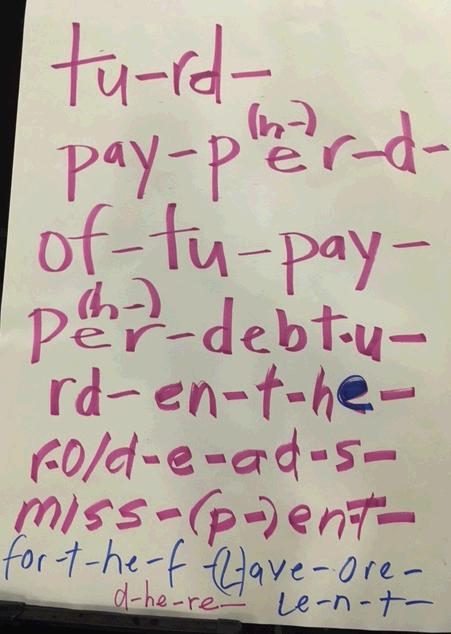 tu-rd-
pay-p(h-)er-d-
of-tu-pay-
p(h-)er-debt-u-
rd-en-t-he-
r-o/d-e-ad-s-
miss-(p-)ent-
for-t-he-f-(L)ave-ore-
d-he-re- Le-n-t-